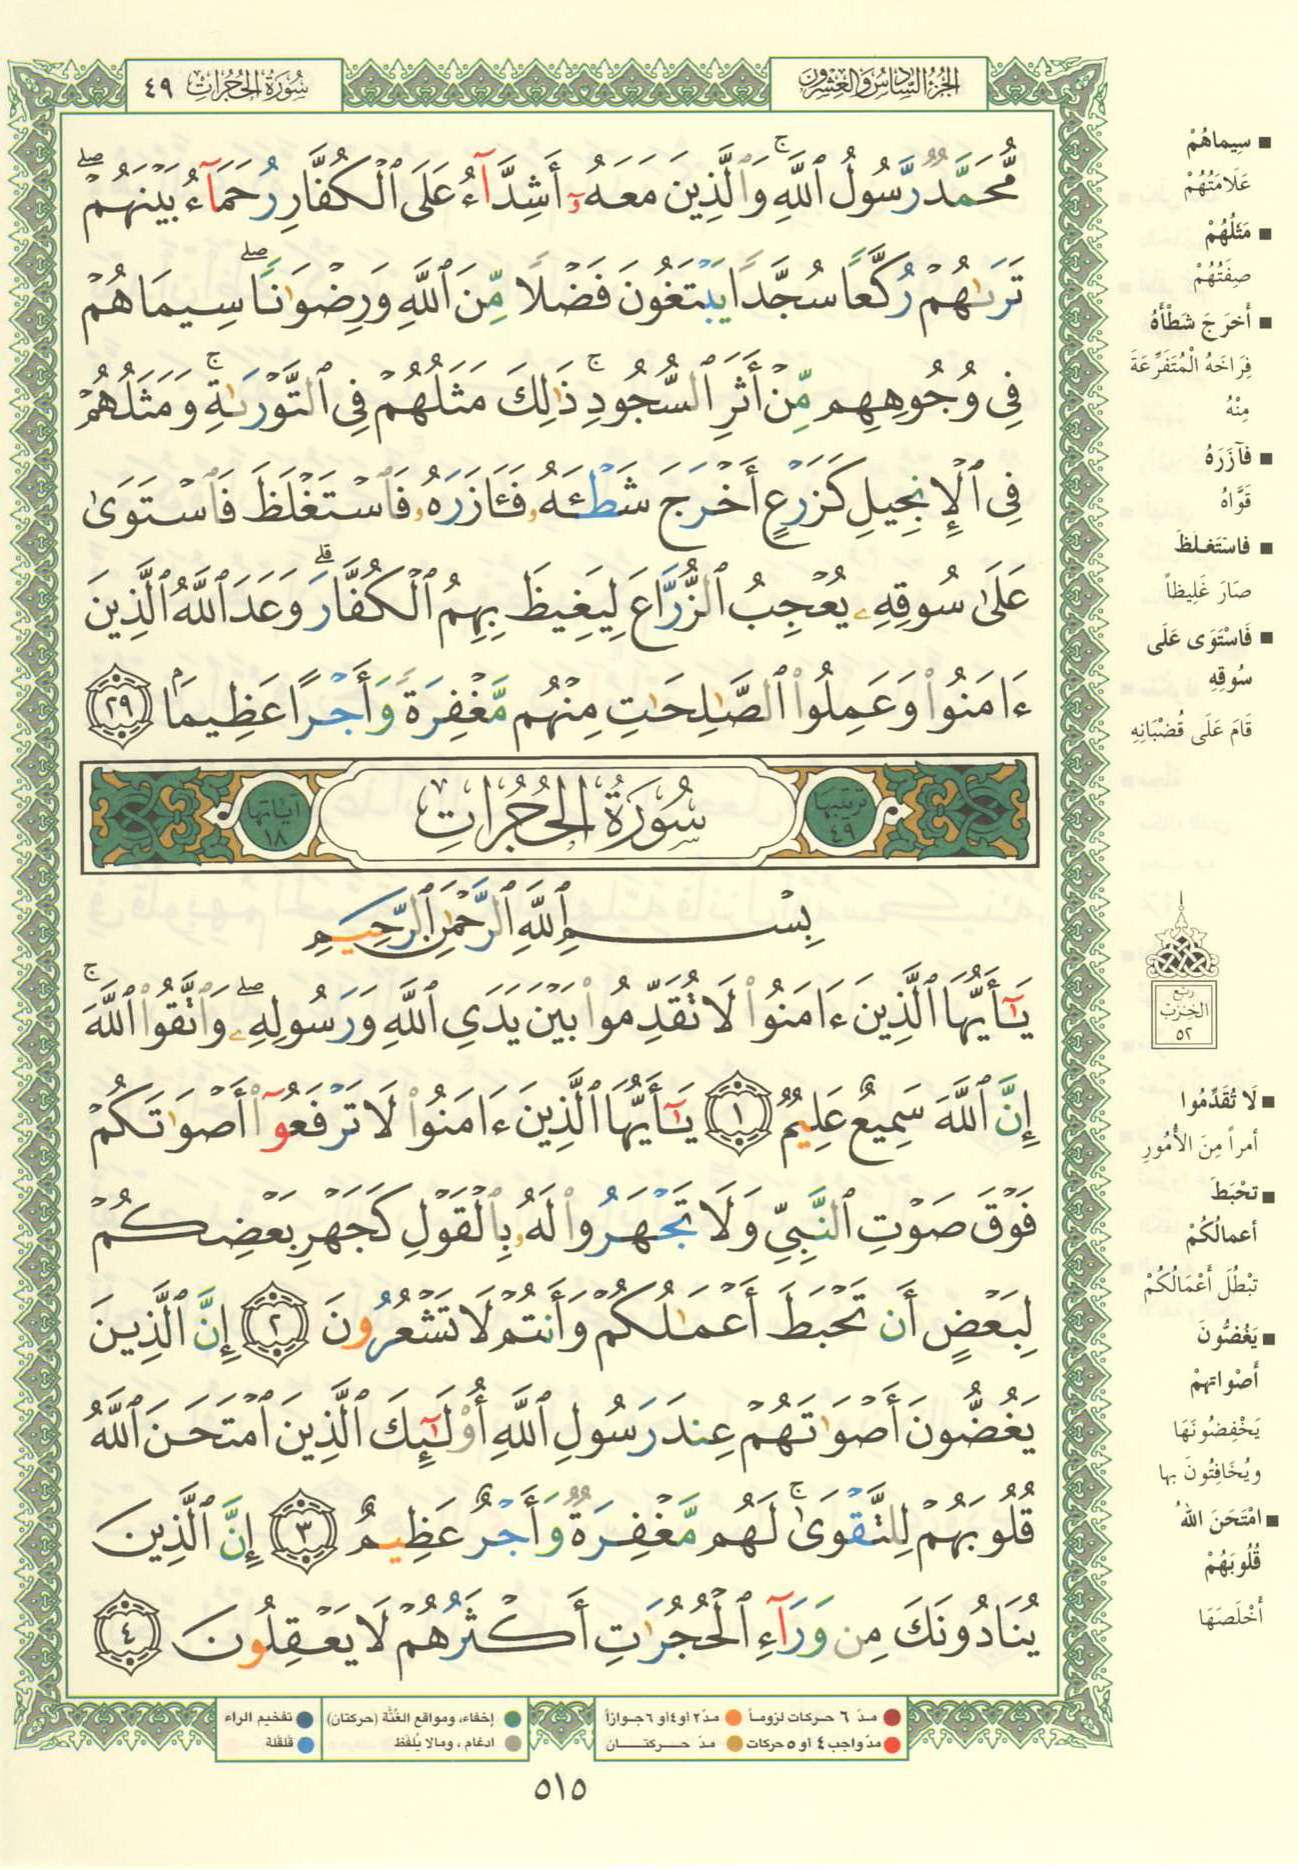 سُورَةُ الحُجُرَاتِ ٤٩
الجُزْءُ السَّادِسُ وَالعِشْرُونَ
مُّحَمَّدٌ رَّسُولُ ٱللَّهِۚ وَٱلَّذِينَ مَعَهُۥٓ أَشِدَّآءُ عَلَى ٱلْكُفَّارِ رُحَمَآءُ بَيْنَهُمْۖ
تَرَىٰهُمْ رُكَّعًا سُجَّدًا يَبْتَغُونَ فَضْلًا مِّنَ ٱللَّهِ وَرِضْوَٰنًاۖ سِيمَاهُمْ
فِى وُجُوهِهِم مِّنْ أَثَرِ ٱلسُّجُودِۚ ذَٰلِكَ مَثَلُهُمْ فِى ٱلتَّوْرَىٰةِۚ وَمَثَلُهُمْ
فِى ٱلْإِنجِيلِ كَزَرْعٍ أَخْرَجَ شَطْـَٔهُۥ فَـَٔازَرَهُۥ فَٱسْتَغْلَظَ فَٱسْتَوَىٰ
عَلَىٰ سُوقِهِۦ يُعْجِبُ ٱلزُّرَّاعَ لِيَغِيظَ بِهِمُ ٱلْكُفَّارَۗ وَعَدَ ٱللَّهُ ٱلَّذِينَ
ءَامَنُوا۟ وَعَمِلُوا۟ ٱلصَّٰلِحَٰتِ مِنْهُم مَّغْفِرَةً وَأَجْرًا عَظِيمًۢا ٢٩
ترتيبها ٤٩ سُورَةُ الحُجُرَاتِ اياتها ١٨
بِسْمِ ٱللَّهِ ٱلرَّحْمَٰنِ ٱلرَّحِيمِ
يَٰٓأَيُّهَا ٱلَّذِينَ ءَامَنُوا۟ لَا تُقَدِّمُوا۟ بَيْنَ يَدَىِ ٱللَّهِ وَرَسُولِهِۦۖ وَٱتَّقُوا۟ ٱللَّهَۚ
إِنَّ ٱللَّهَ سَمِيعٌ عَلِيمٌ ١ يَٰٓأَيُّهَا ٱلَّذِينَ ءَامَنُوا۟ لَا تَرْفَعُوٓا۟ أَصْوَٰتَكُمْ
فَوْقَ صَوْتِ ٱلنَّبِىِّ وَلَا تَجْهَرُوا۟ لَهُۥ بِٱلْقَوْلِ كَجَهْرِ بَعْضِكُمْ
لِبَعْضٍ أَن تَحْبَطَ أَعْمَٰلُكُمْ وَأَنتُمْ لَا تَشْعُرُونَ ٢ إِنَّ ٱلَّذِينَ
يَغُضُّونَ أَصْوَٰتَهُمْ عِندَ رَسُولِ ٱللَّهِ أُو۟لَٰٓئِكَ ٱلَّذِينَ ٱمْتَحَنَ ٱللَّهُ
قُلُوبَهُمْ لِلتَّقْوَىٰۚ لَهُم مَّغْفِرَةٌ وَأَجْرٌ عَظِيمٌ ٣ إِنَّ ٱلَّذِينَ
يُنَادُونَكَ مِن وَرَآءِ ٱلْحُجُرَٰتِ أَكْثَرُهُمْ لَا يَعْقِلُونَ ٤
■ سِيماهُمْ
عَلَامَتُهُمْ
■ مَثَلُهُمْ
صِفَتُهُمْ
■ أَخرَجَ شَطْأَهُ
فِرَاخَهُ الْمُتَفَرِّعَةَ
مِنْهُ
■ فَآزَرَهُ
قَوَّاهُ
■ فاسْتَغلَظَ
صَارَ غَلِيظاً
■ فَاسْتَوَى عَلَى
سُوقِهِ
قَامَ عَلَى قُضْبَانِهِ
رُبع
الحِزْبْ
٥٢
■ لَا تُقَدِّمُوا
أمراً مِنَ الأُمُورِ
■ تحْبَطَ
أعمالُكُمْ
تبْطُلَ أَعْمَالُكُمْ
■ يَغُضُّونَ
أَصْواتهمْ
يَخْفِضُونَهَا
ويُخَافِتُونَ بها
■ امْتَحَنَ اللهُ
قُلُوبَهُمْ
أَخْلَصَهَا
مدّ ٦ حركات لزوماً مدّ ٢ أو ٤ أو ٦ جوازاً
مدّ واجب ٤ أو ٥ حركات مدّ حركتان
إخفاء، ومواقع الغُنَّة (حركتان) تفخيم الراء
ادغام، ومالا يُلفَظ قلقلة
٥١٥